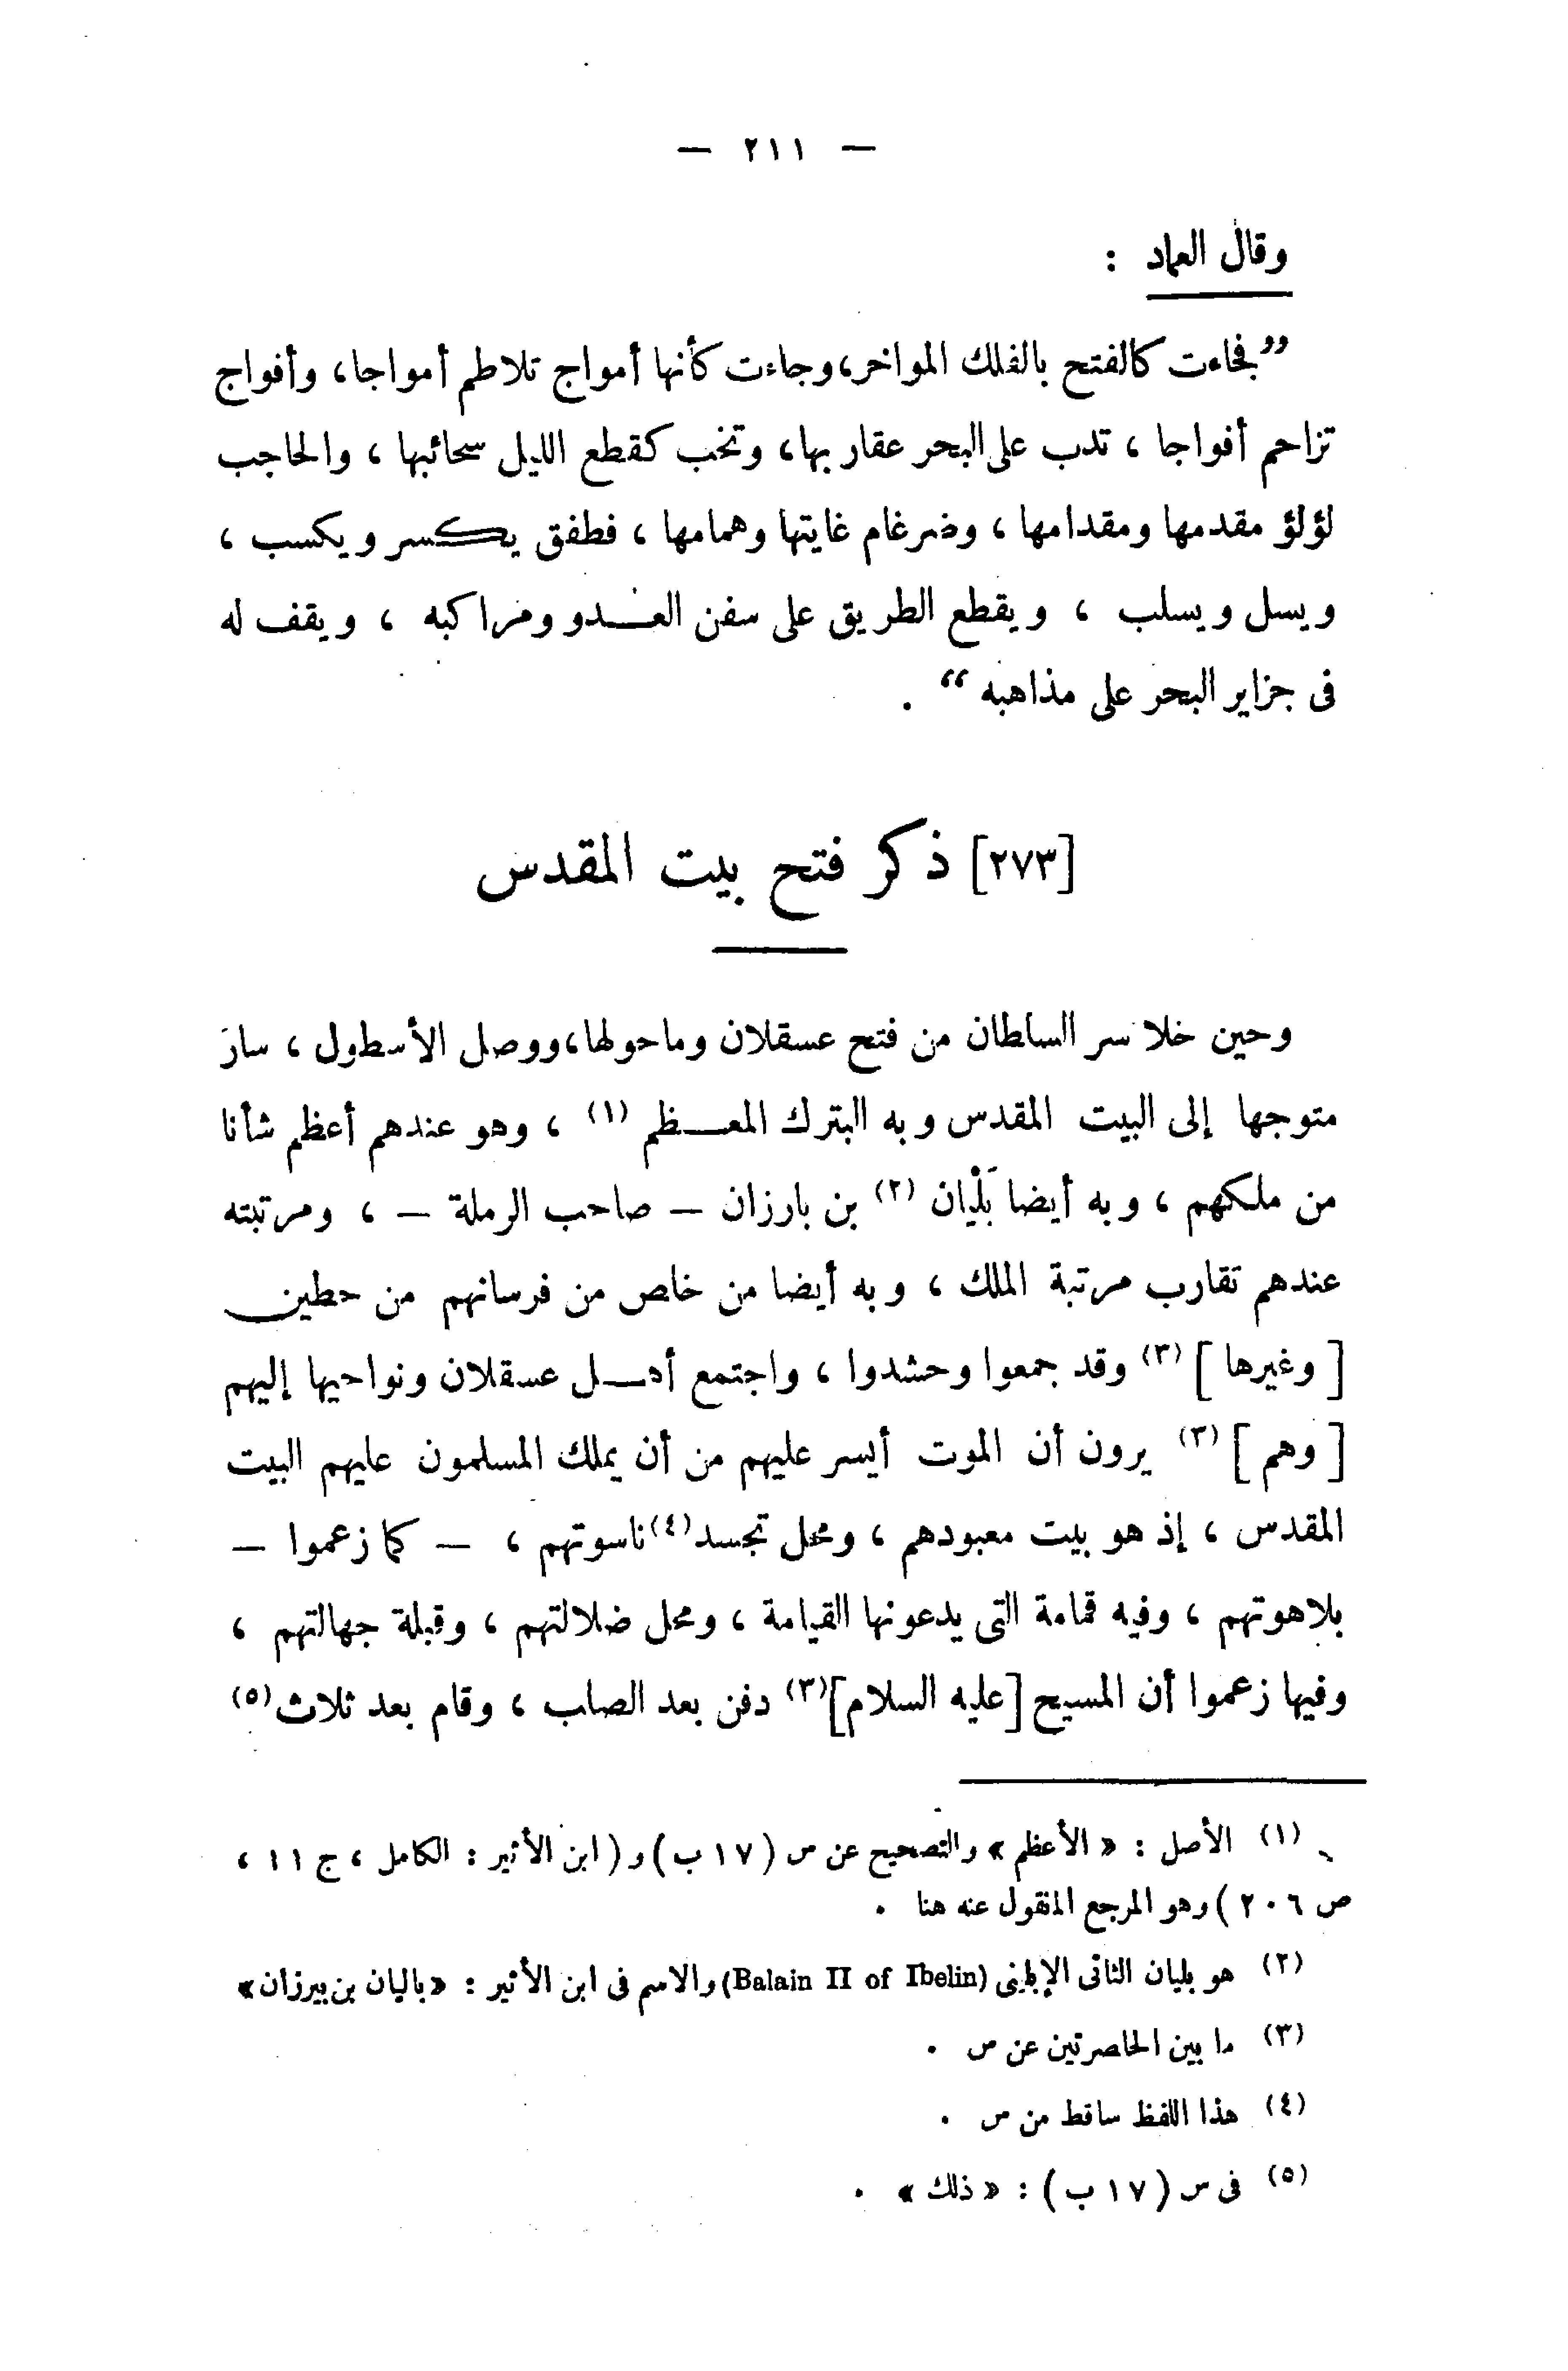 — ٢١١ —
وقال العماد :
”فجاءت كالفتح بالفلك المواخر، وجاءت كأنها أمواج تلاطم أمواجا، وأفواج
تزاحم أفواجا ، تدب على البحر عقاربها، وتخب كقطع الليل سحائبها ، والحاجب
لؤلؤ مقدمها ومقدامها ، وضرغام غايتها وهمامها ، فطفق يكسر ويكسب ،
ويسل ويسلب ، ويقطع الطريق على سفن العدو ومراكبه ، ويقف له
فى جزاير البحر على مذاهبه “ .
[٢٧٣] ذكر فتح بيت المقدس
وحين خلا سر السلطان من فتح عسقلان وما حولها، ووصل الأسطول ، سار
متوجها إلى البيت المقدس وبه البترك المعظم (١) ، وهو عندهم أعظم شأنا
من ملكهم ، وبه أيضا بَلْيان (٢) بن بارزان — صاحب الرملة — ، ومرتبته
عندهم تقارب مرتبة الملك ، وبه أيضا من خاص من فرسانهم من حطين
[ وغيرها ] (٣) وقد جمعوا وحشدوا ، واجتمع أهل عسقلان ونواحيها إليهم
[ وهم ] (٣) يرون أن الموت أيسر عليهم من أن يملك المسلمون عليهم البيت
المقدس ، إذ هو بيت معبودهم ، ومحل تجسد (٤) ناسوتهم ، — كما زعموا —
بلاهوتهم ، وفيه قمامة التى يدعونها القيامة ، ومحل ضلالتهم ، وقبلة جهالتهم ،
وفيها زعموا أن المسيح [عليه السلام] (٣) دفن بعد الصلب ، وقام بعد ثلاث (٥)
(١) الأصل : « الأعظم » والتصحيح عن س (١٧ ب) و ( ابن الأثير : الكامل ، ج ١١ ،
ص ٢٠٦ ) وهو المرجع المنقول عنه هنا .
(٢) هو بليان الثانى الإبلينى (Balain II of Ibelin) والاسم فى ابن الأثير : « باليان بن بيرزان »
(٣) ما بين الحاصرتين عن س .
(٤) هذا اللفظ ساقط من س .
(٥) فى س (١٧ ب) : « ذلك » .